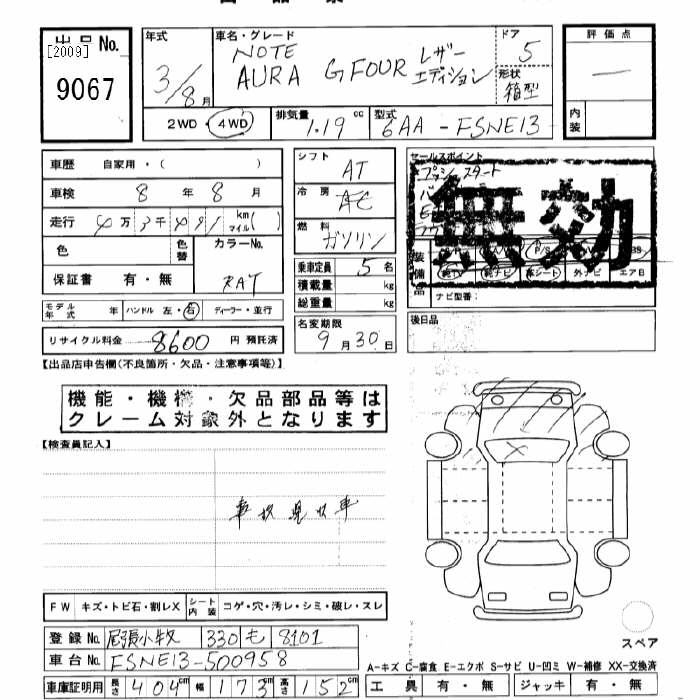 出品No.
[2009]
9067
年式
3/8月
車名・グレード
NOTE
AURA G FOUR レザー
エディション
ドア
5
形状
箱型
評価点
—
内装
2WD・4WD
排気量
1.19 cc
型式
6AA-FSNE13
車歴 自家用・( )
車検 8年8月
走行 4万3千491km マイル( )
色 色替
カラーNo.
RAT
保証書 有・無
モデル年式 年 ハンドル 左・右 ディーラー・並行
リサイクル料金 8600円 預託済
シフト AT
冷房 AC
燃料 ガソリン
乗車定員 5名
積載量 kg
総重量 kg
名変期限
9月30日
セールスポイント
プッシュスタート
無効
装備品
P/S
純ナビ 革シート 外ナビ エアB
ナビ型番:
後日品
【出品店申告欄(不良箇所・欠品・注意事項等)】
機能・機構・欠品部品等は
クレーム対象外となります
【検査員記入】
FW キズ・トビ石・割レX シート内装 コゲ・穴・汚レ・シミ・破レ・スレ
登録No. 尾張小牧 330 も 8101
車台No. FSNE13-500958
車庫証明用 長さ 404cm 幅 173cm 高さ 152cm
スペア
A-キズ C-腐食 E-エクボ S-サビ U-凹ミ W-補修 XX-交換済
工具 有・無 ジャッキ 有・無